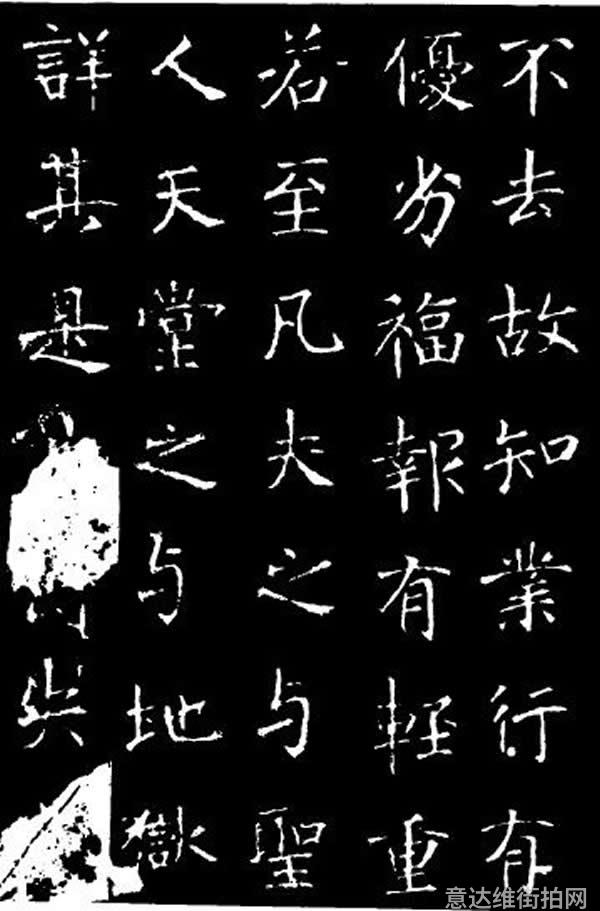 不去故知業行有
優劣福報有輕重
若至凡夫之与聖
人天堂之与地獄
詳其是
意达维街拍网